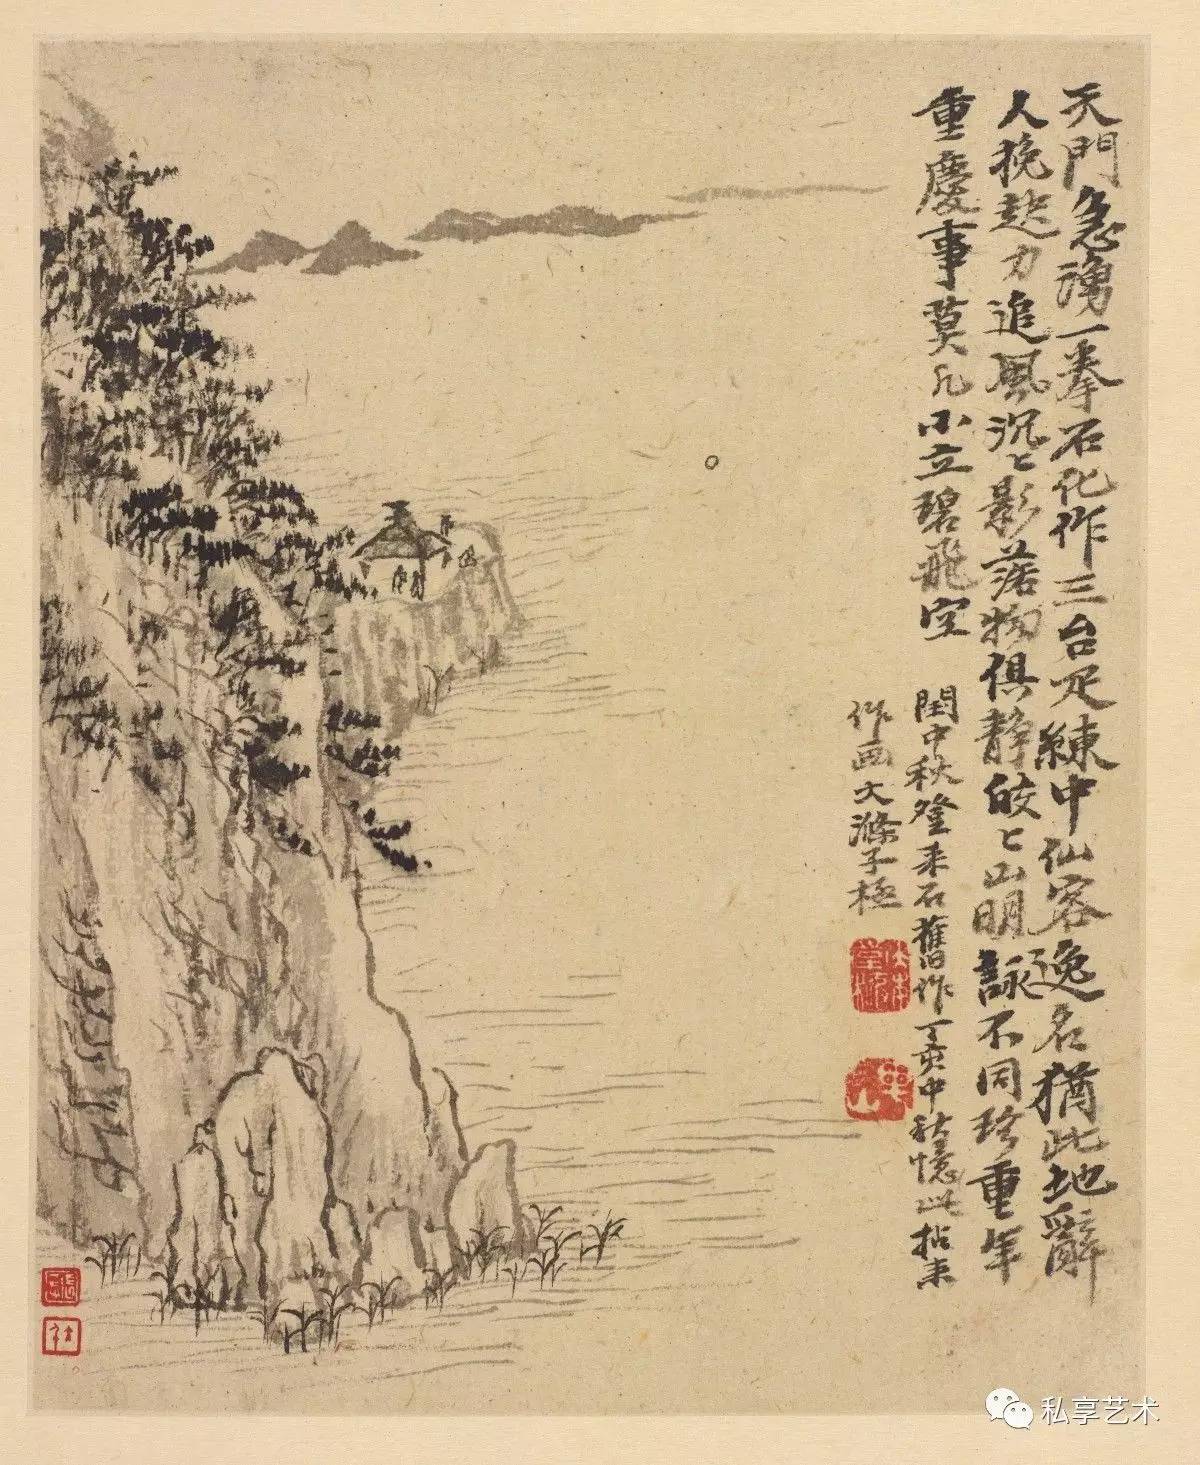 天門急湧一拳石化作三台疋練中仙客逸名猶此地辭
人挽起力追風沉〻影落物俱静皎〻山明詠不同珍重年
重慶事莫凡小立碧飛空
閏中秋登采石舊作丁亥中秋憶此拈来
作画 大滌子極
私享艺术